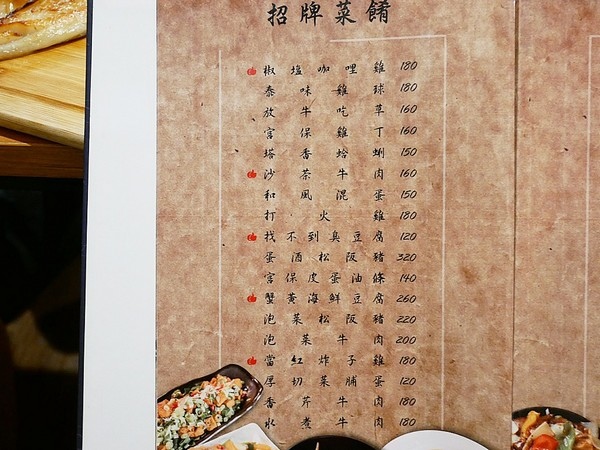 招牌菜餚
椒塩咖哩雞 180
泰味雞球 180
放牛吃草 160
宮保雞丁 160
塔香蛤蜊 150
沙茶牛肉 160
和風混蛋 150
打火雞 180
找不到臭豆腐 120
蛋酒松阪豬 320
宮保皮蛋油條 140
蟹黃海鮮豆腐 260
泡菜松阪豬 220
泡菜牛肉 200
當紅炸子雞 180
厚切菜脯蛋 120
香芹牛肉 180
水煮牛肉 180